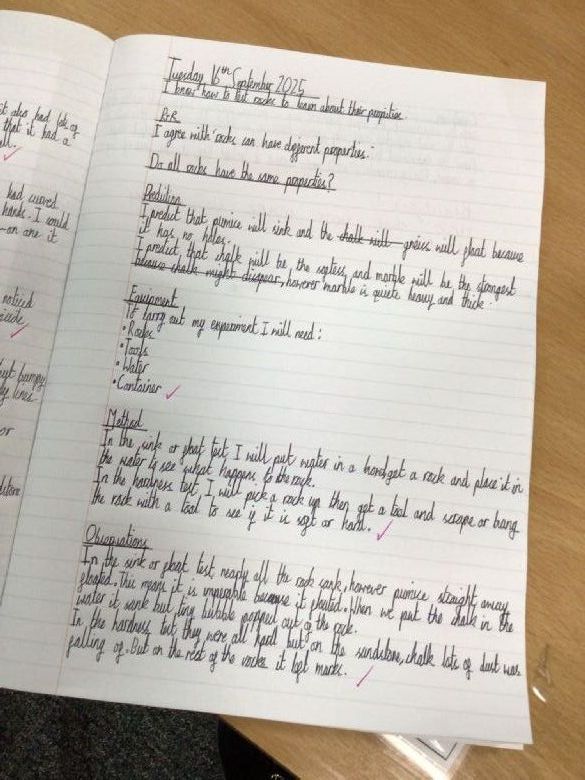 st also had lots of
that it had a
all.
had curved
hands. I could
on one it
noticed
side
but bumpy
ly lines
or
Tuesday 16th September 2025
I know how to test rocks to learn about their propities.
P.R.
I agree with "rocks can have different properties."
Do all rocks have the same properties?
Prediction
I predict that pumice will sink and the chalk will gneiss will float because
it has no holes.
I predict that chalk will be the softess, and marble will be the strongest
because chalk might disapear, however marble is quiete heavy and thick.
Equipment
To carry out my experiment I will need:
• Rocks
• Tools
• Water
• Container
Method
In the sink or float test, I will put water in a get a rock and place it in
the water & see what happens to the rock.
In the hardness test, I will pick a rock up then get a tool and scrape or bang
the rock with a tool to see if it is soft or hard.
Observations
In the sink or float test nearly all the rock sank, however pumice straight away
floated. This means it is because it floated. When we put the chalk in the
water it sank but tiny bubble popped out of the rock.
In the hardness test they were all hard but on the sandstone, chalk lots of dust was
falling of. But on the rest of the rocks it left marks.